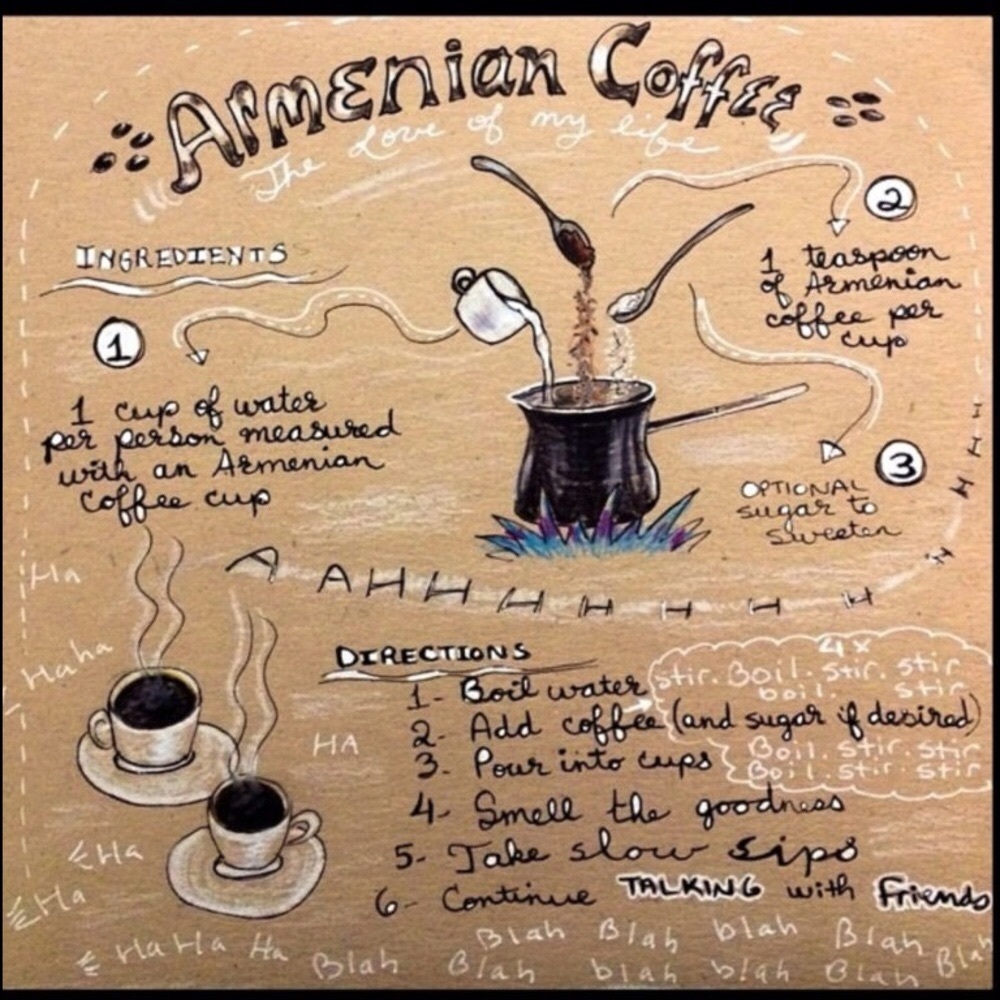 ARMENIAN COFFEE
The Love of my life
INGREDIENTS
1
1 cup of water
per person measured
with an Armenian
coffee cup
2
1 teaspoon
of Armenian
coffee per
cup
3
OPTIONAL
sugar to
sweeten
A AHHHHHHHHHHH
Ha
Haha
HA
Ha
Ha
Ha Ha Ha
DIRECTIONS
1- Boil water
2- Add coffee (and sugar if desired)
3- Pour into cups
4- Smell the goodness
5- Take slow sips
6- Continue TALKING with Friends
4x
stir. Boil. stir. stir
boil. stir
Boil. stir. stir
Boil. stir. stir
Blah Blah blah Blah
Blah Blah blah blah Blah Blah